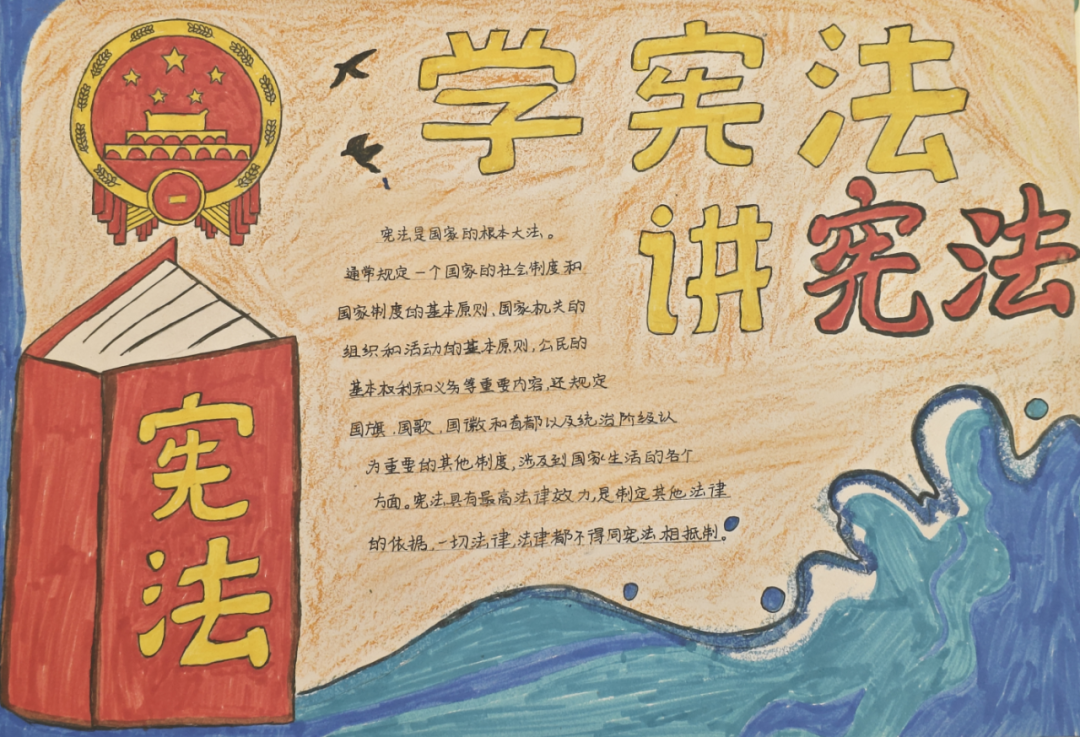 学宪法
讲宪法
宪法是国家的根本大法。
通常规定一个国家的社会制度和
国家制度的基本原则、国家机关的
组织和活动的基本原则,公民的
基本权利和义务等重要内容,还规定
国旗、国歌、国徽和首都以及统治阶级认
为重要的其他制度,涉及到国家生活的各个
方面。宪法具有最高法律效力,是制定其他法律
的依据,一切法律,法律都不得同宪法相抵制。
宪
法